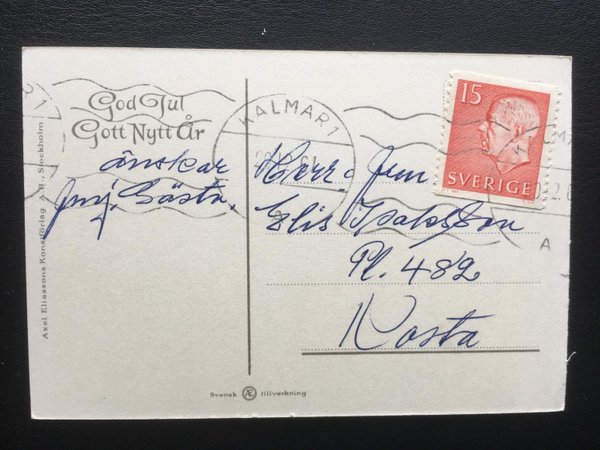 God Jul
Gott Nytt År
önskar
Gösta.
KALMAR 1
15
SVERIGE
Herr
Elis Isaksson
Pl. 482
Kosta
Axel Eliassons Konstförlag A.B. Stockholm
Svensk Æ tillverkning
A